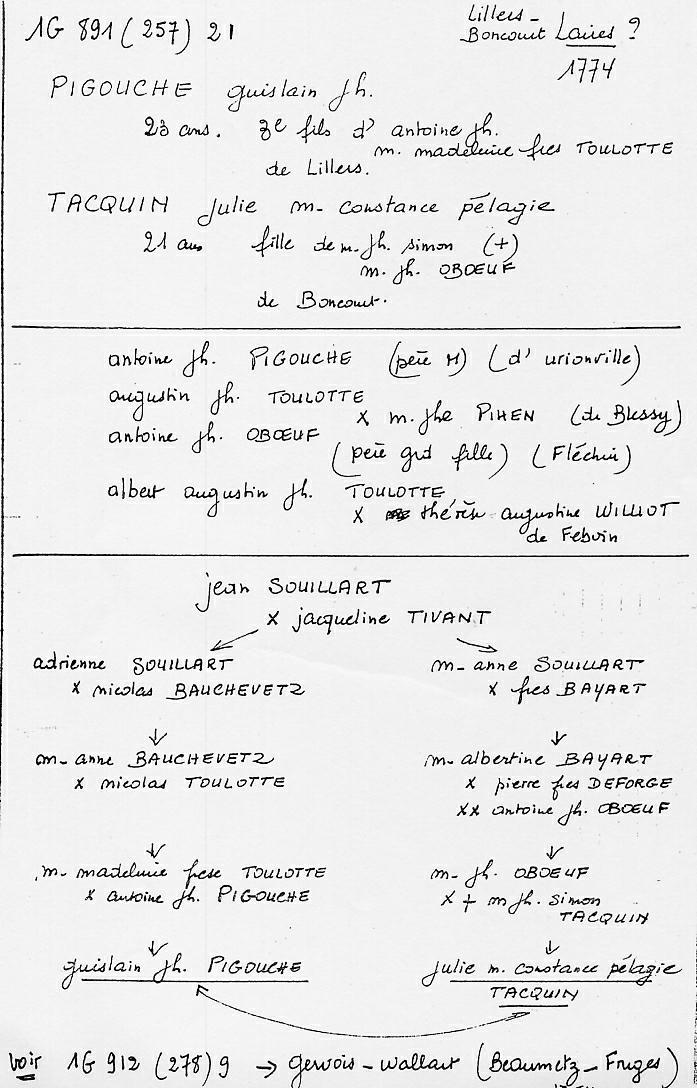 1G 891 (257) 21
Lillers -
Boncourt Laires ?
1774
PIGOUCHE guislain jh.
23 ans. 3e fils d' antoine jh.
m. madeleine fres TOULOTTE
de Lillers.
TACQUIN julie m- constance pélagie
21 ans fille de m- jh. simon (+)
m. jh. OBOEUF
de Boncourt.
antoine jh. PIGOUCHE (père M) (d' urionville)
augustin jh. TOULOTTE
x m. jhe PIHEN (de Blessy)
antoine jh. OBOEUF
(père grd fille) (Fléchin)
albert augustin jh. TOULOTTE
x thérèse augustine WILLIOT
de Febvin
jean SOUILLART
x jacqueline TIVANT
adrienne SOUILLART
x nicolas BAUCHEVETZ
m- anne SOUILLART
x fres BAYART
m- anne BAUCHEVETZ
x nicolas TOULOTTE
m- albertine BAYART
x pierre fres DEFORGE
xx antoine jh. OBOEUF
m- madeleine frese TOULOTTE
x antoine jh. PIGOUCHE
m- jh. OBOEUF
x + m jh. simon
TACQUIN
guislain jh. PIGOUCHE
julie m. constance pélagie
TACQUIN
voir 1G 912 (278) 9 → gervois - wallart (Beaumetz - Fruges)